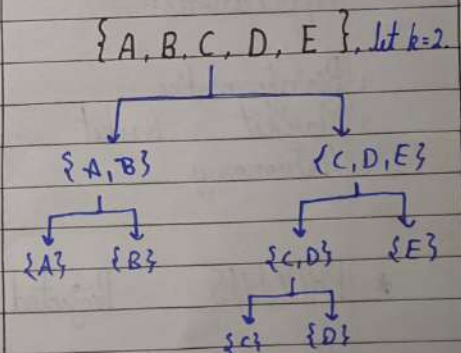 {A, B, C, D, E}, let k=2.
{A, B} {C, D, E}
{A} {B} {C, D} {E}
{C} {D}